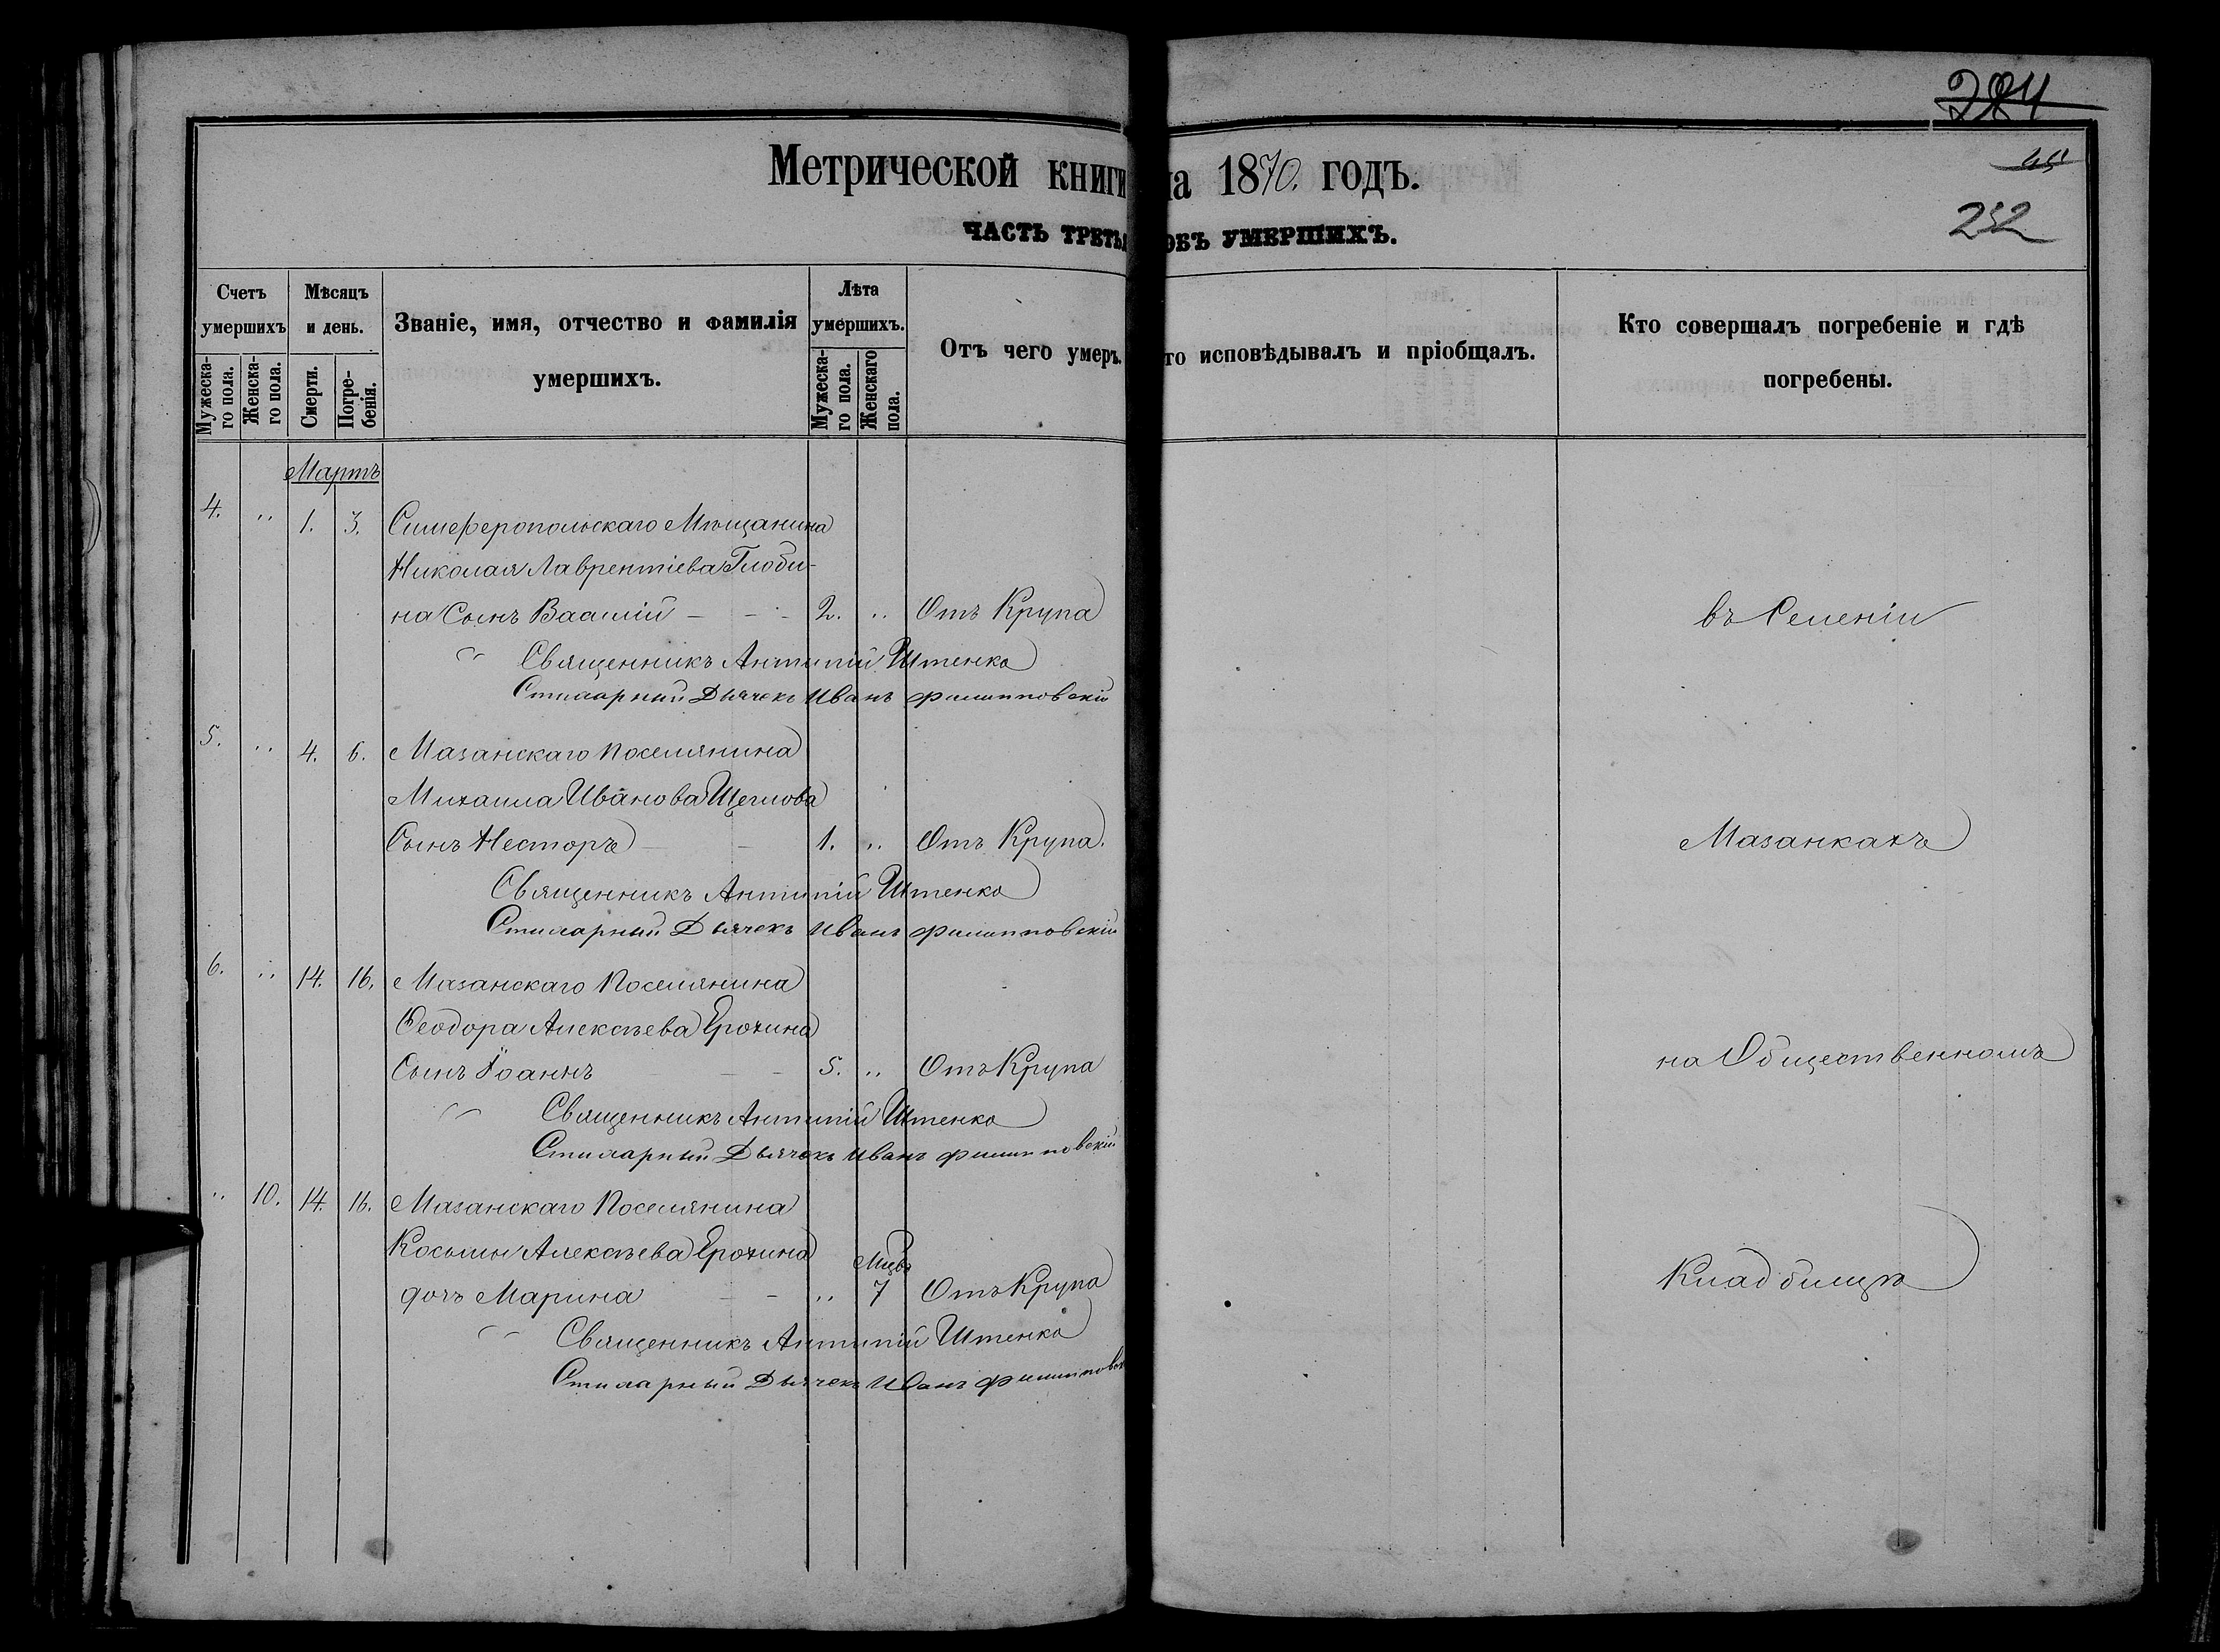 284
45
252
Метрической книги на 1870. годъ.
ЧАСТЬ ТРЕТЬЯ ОБЪ УМЕРШИХЪ.
Счетъ умершихъ
Мужеска-го пола.
Женска-го пола.
Мѣсяцъ и день.
Смерти.
Погре-бенія.
Званіе, имя, отчество и фамилія умершихъ.
Лѣта умершихъ.
Мужеска-го пола.
Женскаго пола.
Отъ чего умеръ.
то исповѣдывалъ и пріобщалъ.
Кто совершалъ погребеніе и гдѣ погребены.
Мартъ
4. " 1. 3. Симферопольскаго Мѣщанина
Николая Лаврентіева Глоби-
на Сынъ Василій - - - 2. " Отъ Крупа
въ Селеніи
" Священникъ Антипій Штенко
Стихарный Дьячекъ Иванъ Филипповскій
5. " 4. 6. Мазанскаго Поселянина
Михаила Иванова Щеглова
Сынъ Несторъ - - 1. " Отъ Крупа.
Мазанкахъ
Священникъ Антипій Штенко
Стихарный Дьячекъ Иванъ Филипповскій
6. " 14. 16. Мазанскаго Поселянина
Ѳеодора Алексѣева Ерохина
Сынъ Іоаннъ - - 5. " Отъ Крупа
на Общественномъ
" Священникъ Антипій Штенко
Стихарный Дьячекъ Иванъ Филипповскій
" 10. 14. 16. Мазанскаго Поселянина
Косьмы Алексѣева Ерохина Мцвъ
дочъ Марина - - " 7 Отъ Крупа
Кладбищѣ
" Священникъ Антипій Штенко
Стихарный Дьячекъ Иванъ Филипповск